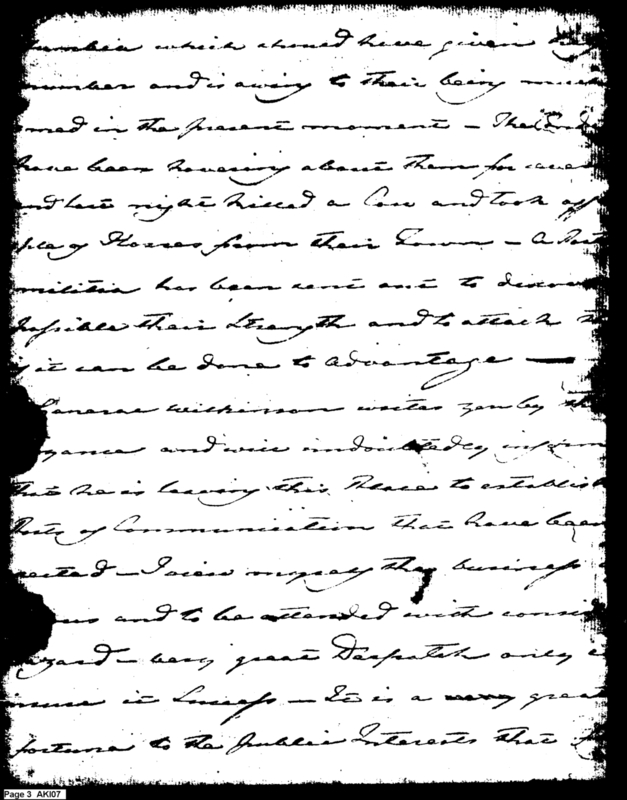 lumbia which should have given
number and is owing to their being much
med in the present moment — The Ind
have been hovering about them for
nd last night killed a Cow and took off
ple of Horses from their Town — A
militia has been sent out to discov
possible their Strength and to attack
if it can be done to advantage —
General Wilkinson writes you by th
eyance and will undoubtedly inform
that he is leaving this Place to establish
Posts of Communication that have been
ected — I view myself the business
ous and to be attended with consid
azard — very great Despatch only
insure it Success — It is a very great
fortune to the Public Interests that
Page 3 AKI07